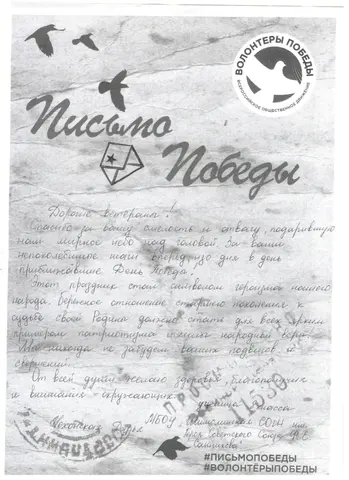 ВОЛОНТЕРЫ ПОБЕДЫ
ВСЕРОССИЙСКОЕ ОБЩЕСТВЕННОЕ ДВИЖЕНИЕ
Письмо
Победы
Дорогие ветераны!
Спасибо за вашу смелость и отвагу, подарившую
нам мирное небо над головой. За ваши
непоколебимые шаги вперед изо дня в день
приближавшие День Победы!
Этот праздник стал символом героизма нашего
народа. Бережное отношение старшего поколения к
судьбе своей Родины должно стать для всех ярким
примером патриотизма
Мы никогда не забудем ваших подвигов и
свершений.
От всей души желаю здоровья, благополучия
и внимания окружающих.
ученица класса
МБОУ СОШ им.
Героя Советского Союза
#ПИСЬМОПОБЕДЫ
#ВОЛОНТЁРЫПОБЕДЫ